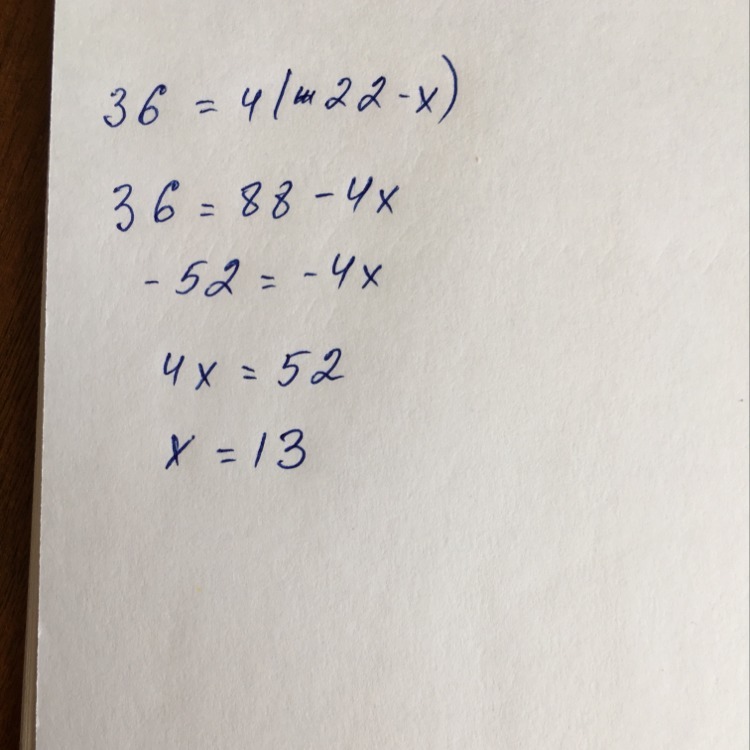 36 = 4(22-x)
36 = 88 - 4x
-52 = -4x
4x = 52
x = 13